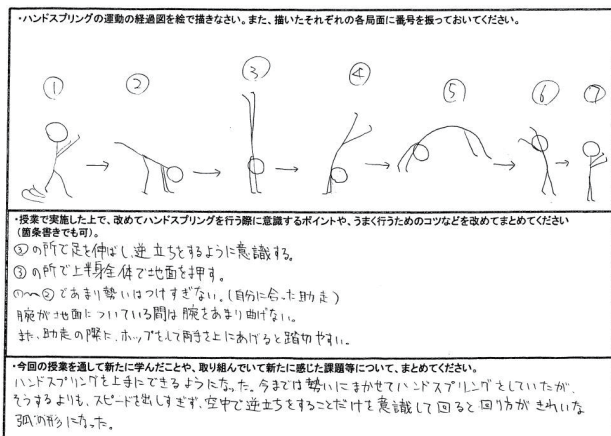 ・ハンドスプリングの運動の経過図を絵で描きなさい。また、描いたそれぞれの各局面に番号を振っておいてください。
① ② ③ ④ ⑤ ⑥ ⑦
・授業で実施した上で、改めてハンドスプリングを行う際に意識するポイントや、うまく行うためのコツなどを改めてまとめてください
(箇条書きでも可)。
③の所で足を伸ばし、逆立ちをするように意識する。
③の所で上半身全体で地面を押す。
①〜②であまり勢いはつけすぎない。(自分に合った助走)
腕が地面についている間は腕をあまり曲げない。
また、助走の際に、ホップをして両手を上にあげると踏切やすい。
・今回の授業を通して新たに学んだことや、取り組んでいて新たに感じた課題等について、まとめてください。
ハンドスプリングを上手にできるようになった。今までは勢いにまかせてハンドスプリングをしていたが、
そうするよりも、スピードを出しすぎず、空中で逆立ちをすることだけを意識して回ると回り方がきれいな
弧の形になった。